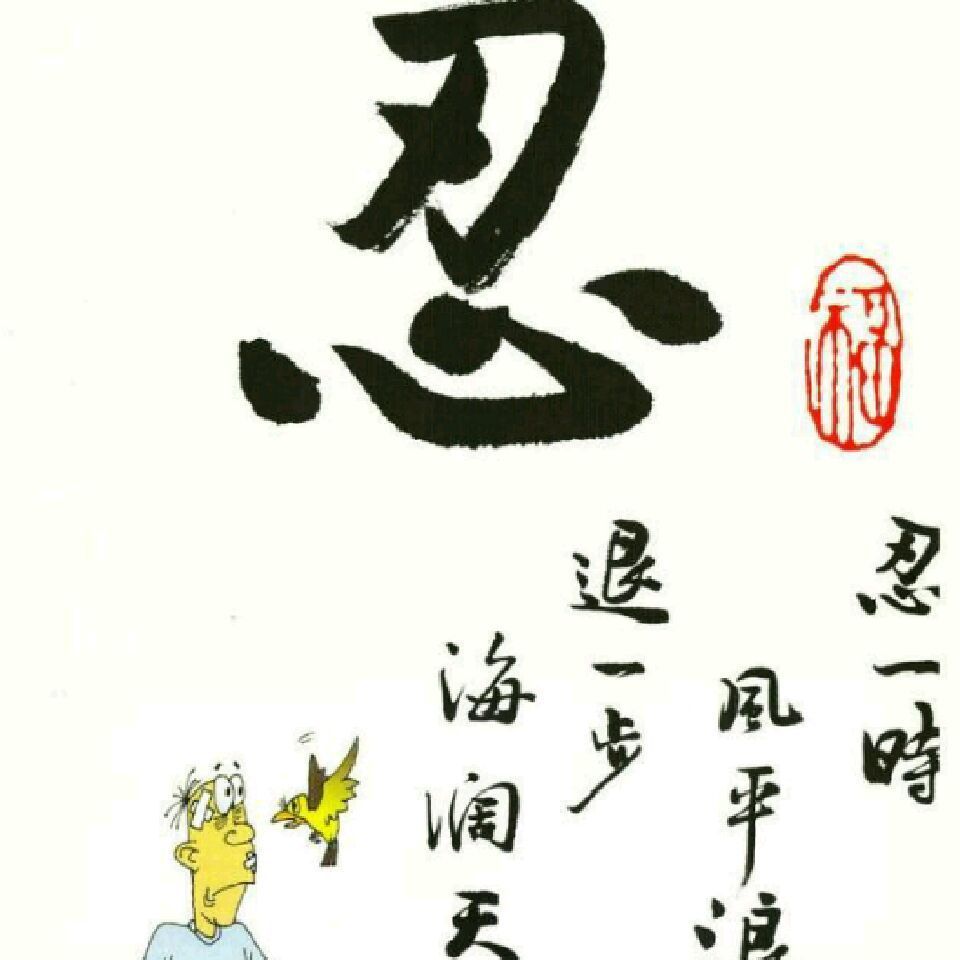 忍
忍一時
風平浪
退一步
海阔天